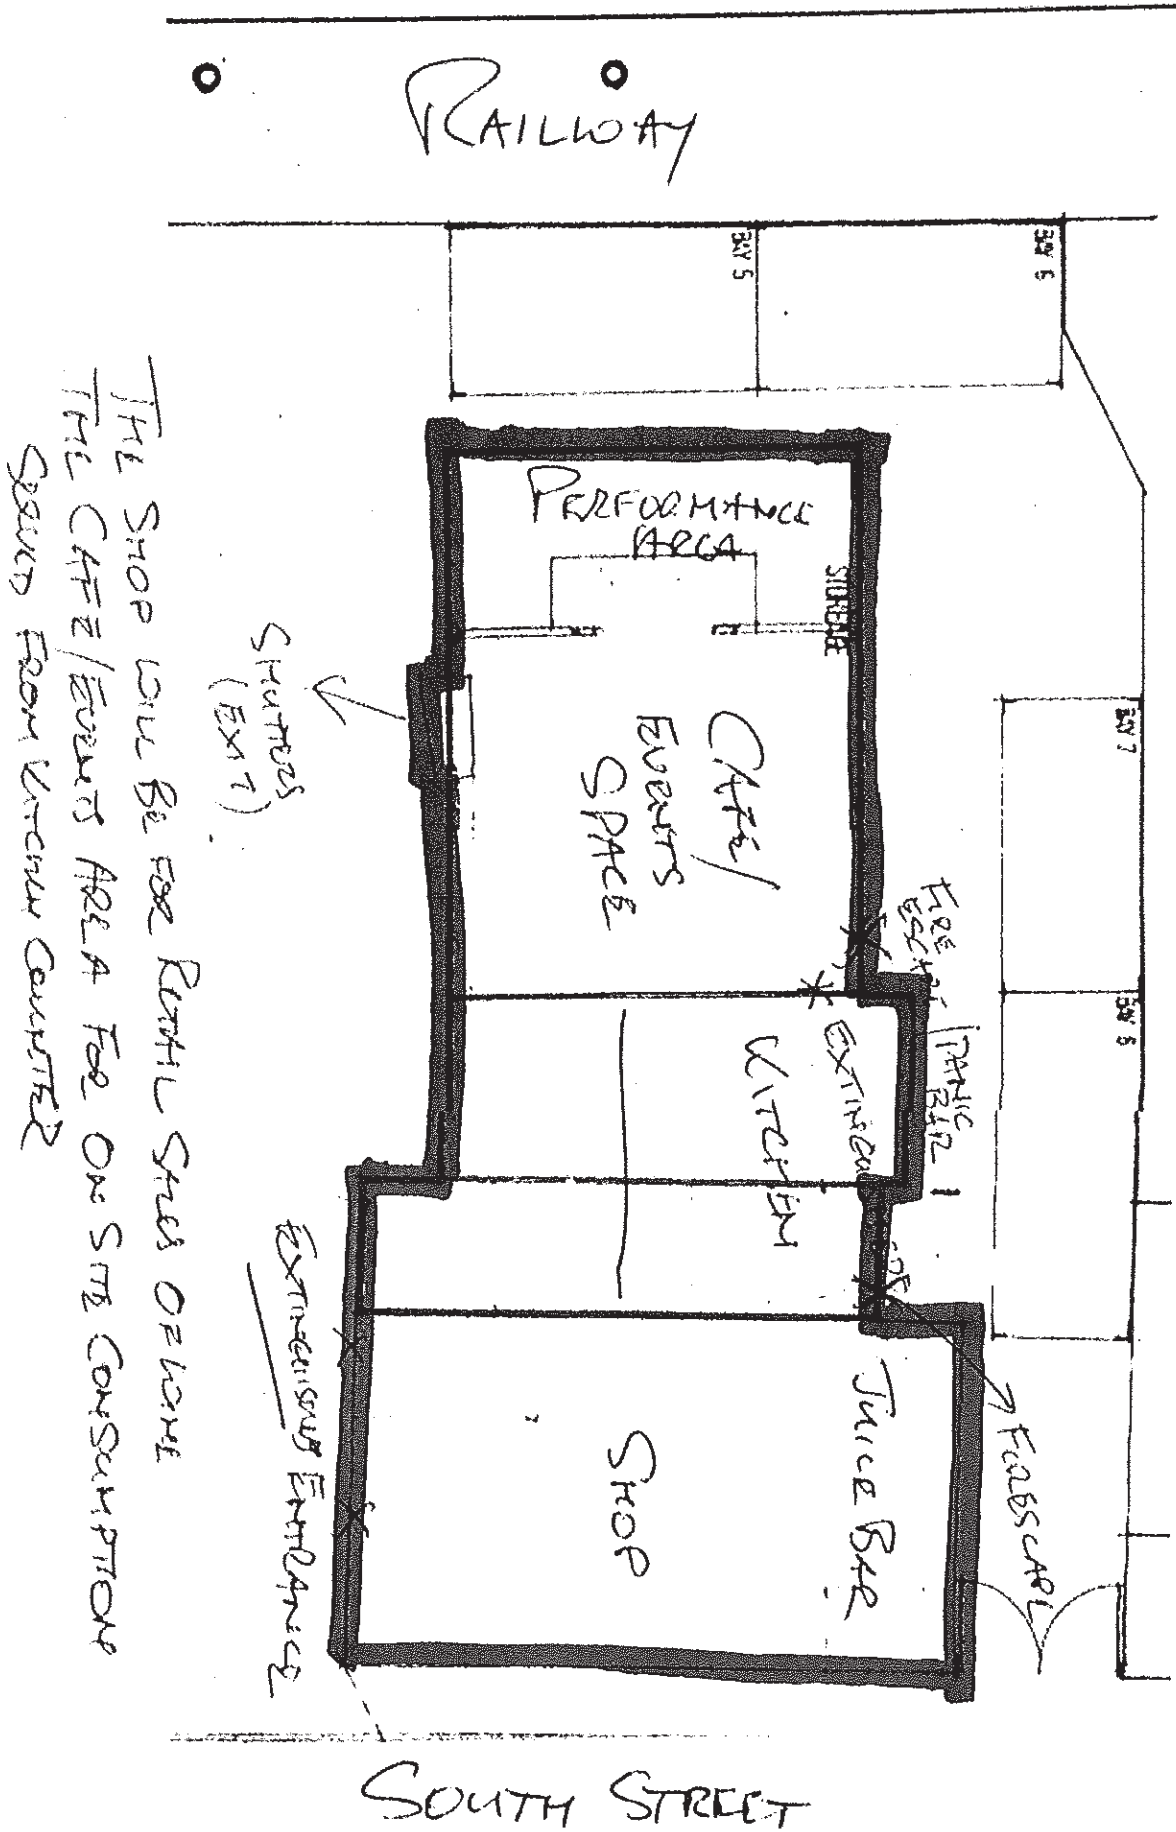 RAILWAY
BAY 5
BAY 6
PERFORMANCE
AREA
STORAGE
CAFE/
EVENTS
SPACE
SHUTTERS
(EXT)
BAY 7
FIRE
ESCAPE
PANIC
BAR
EXTINGUISHER
KITCHEN
JUICE BAR
SHOP
FIRE ESCAPE
EXTINGUISHER ENTRANCE
SOUTH STREET
THE SHOP WILL BE FOR RETAIL SALES OF WINE
THE CAFE/EVENTS AREA FOR ON SITE CONSUMPTION
SERVED FROM KITCHEN COUNTER